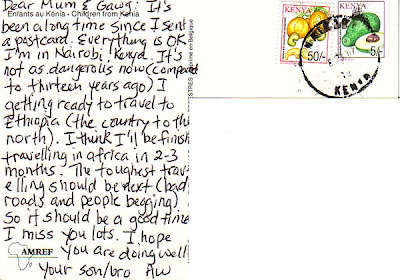 Dear Mum & Gawg: It's
Enfants au Kénia - Children from Kenia
been a long time since I sent
a postcard. Everything is OK
I'm in Nairobi Kenya. It's
not as dangerous now (compared
to thirteen years ago) I
getting ready to travel to
Ethiopia (the country to the
north). I think I'll be finish
travelling in africa in 2-3
months. The toughest trav-
elling should be next (bad
roads and people begging)
So it should be a good time
I miss you lots. I hope
AMREF you are doing well
Your son/bro AW
50/-
5/-
KENYA